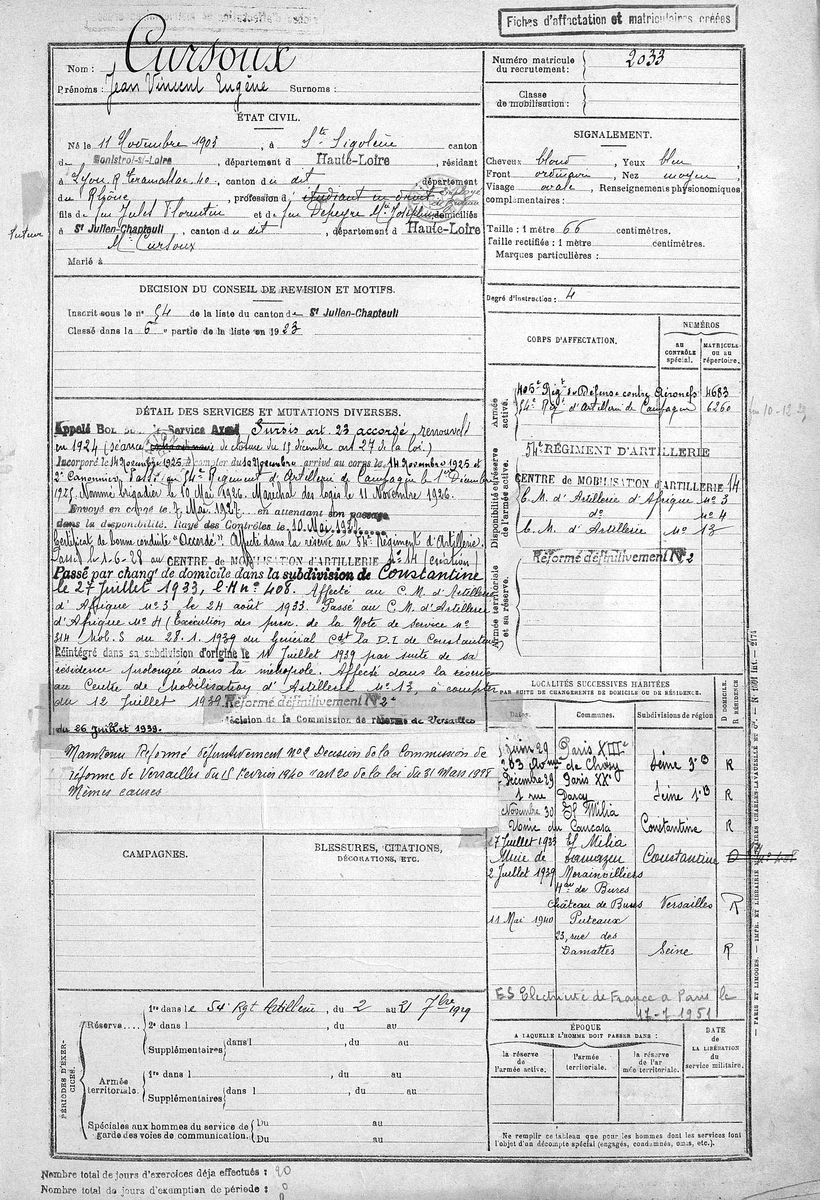 Fiches d'affectation et matriculaires créées
Nom : Cursoux
Prénoms : Jean Vincent Eugène Surnoms :
ÉTAT CIVIL.
Né le 11 Novembre 1903, à Ste Sigolène canton
de Monistrol-s/-Loire, département d Haute-Loire, résidant
à Lyon, R. 40, canton du dit département
du Rhône, profession d étudiant en droit
fils de feu Jules Florentin et de feu Depeyre Mie domiciliés
à St Julien-Chapteuil, canton du dit, département d Haute-Loire
tuteur Mr Cursoux
Marié à
DÉCISION DU CONSEIL DE REVISION ET MOTIFS.
Inscrit sous le n° 54 de la liste du canton de St Julien-Chapteuil
Classé dans la 6e partie de la liste en 1923
DÉTAIL DES SERVICES ET MUTATIONS DIVERSES.
Appelé Bon Service Armé Sursis art. 23 accordé, renouvelé
en 1924 (séance de cloture du 15 décembre art 27 de la loi.)
Incorporé le 14 Novembre 1925 à compter du 10 Novembre arrivé au corps le 14 Novembre 1925 et
2e canonnier. Passé au 54e Régiment d'Artillerie de Campagne le 1er Décembre
1925. Nommé brigadier le 10 Mai 1926. Maréchal des Logis le 11 Novembre 1926.
Envoyé en congé le 7 Mai 1927 en attendant son passage
dans la disponibilité. Rayé des Contrôles le 10 Mai 1927.
Certificat de bonne conduite "Accordé". Affecté dans la réserve au 54e Régiment d'Artillerie.
Passé le 1-6-28 au CENTRE de MOBILISATION D'ARTILLERIE N° 14 (création)
Passé par changt de domicile dans la subdivision de Constantine
le 27 juillet 1933, n° 408. Affecté au C.M. d'Artillerie
d'Afrique n° 3 le 24 août 1933. Passé au C.M. d'Artillerie
d'Afrique n° 4 (Exécution des presc. de la Note de Service n°
314 Mob. S du 28.1.1939 du Général Cdt la D.I de Constantine
Réintégré dans sa subdivision d'origine le 11 Juillet 1939 par suite de sa
résidence prolongée dans la métropole. Affecté dans la réserve
au Centre de Mobilisation d'Artillerie n° 13 à compter
du 12 Juillet 1939 Réformé définitivement N° 2
décision de la Commission de réforme de Versailles
du 26 Juillet 1939.
Maintenu Réformé définitivement n° 2 Décision de la Commission de
réforme de Versailles du 15 Février 1940 art 20 de la loi du 31 Mars 1928
Mêmes causes
CAMPAGNES.
BLESSURES, CITATIONS,
DÉCORATIONS, ETC.
PÉRIODES D'EXERCICES.
Réserve.... 1re dans le 54e Rgt Artillerie, du 2 au 21 7bre 1929
2e dans l , du au
Supplémentaires dans l , du au
Armée territoriale. 1re dans l , du au
Supplémentaires dans l , du au
Spéciales aux hommes du service de garde des voies de communication. Du au
Du au
Nombre total de jours d'exercices déjà effectués : 20
Nombre total de jours d'exemption de période : 0
Numéro matricule du recrutement : 2033
Classe de mobilisation :
SIGNALEMENT.
Cheveux blond, Yeux bleu,
Front ordinaire, Nez moyen,
Visage ovale, Renseignements physionomiques
complémentaires :
Taille : 1 mètre 66 centimètres.
Taille rectifiée : 1 mètre centimètres.
Marques particulières :
Degré d'instruction : 4
CORPS D'AFFECTATION.
NUMÉROS
AU CONTRÔLE spécial.
MATRICULE OU AU répertoire.
Armée active.
405e Régt de Défense contre Aéronefs 4683
54e Régt d'Artillerie de Campagne 6260
Disponibilité et réserve de l'armée active.
54e RÉGIMENT D'ARTILLERIE
CENTRE de MOBILISATION d'ARTILLERIE 14
C. M. d'Artillerie d'Afrique n° 3
do n° 4
C. M. d'Artillerie n° 13
Réformé définitivement N° 2
Armée territoriale et sa réserve.
LOCALITÉS SUCCESSIVES HABITÉES
PAR SUITE DE CHANGEMENTS DE DOMICILE OU DE RÉSIDENCE.
Dates. Communes. Subdivisions de région
D DOMICILE. R RÉSIDENCE
Juin 29 Paris XIIIe
de Choisy Seine 3e B R
Décembre 29 Paris XXe
1 rue Darcy Seine 1e B R
Novembre 30 El Milia
Constantine R
27 Juillet 1933 El Milia
Constantine D
2 Juillet 1939 Morainvilliers
de Bures
Château de Bures Versailles R
11 Mai 1940 Puteaux
23, rue des
Damattes Seine R
ES Electricité de France à Paris le
17-7-1951
ÉPOQUE
A LAQUELLE L'HOMME DOIT PASSER DANS :
la réserve de l'armée active.
l'armée territoriale.
la réserve de l'armée territoriale.
DATE
DE LA LIBÉRATION
du service militaire.
Ne remplir ce tableau que pour les hommes dont les services font
l'objet d'un décompte spécial (engagés, condamnés, omis, etc.).
PARIS ET LIMOGES. — IMPR. ET LIBRAIRIE MILITAIRES CHARLES-LAVAUZELLE ET Cie.